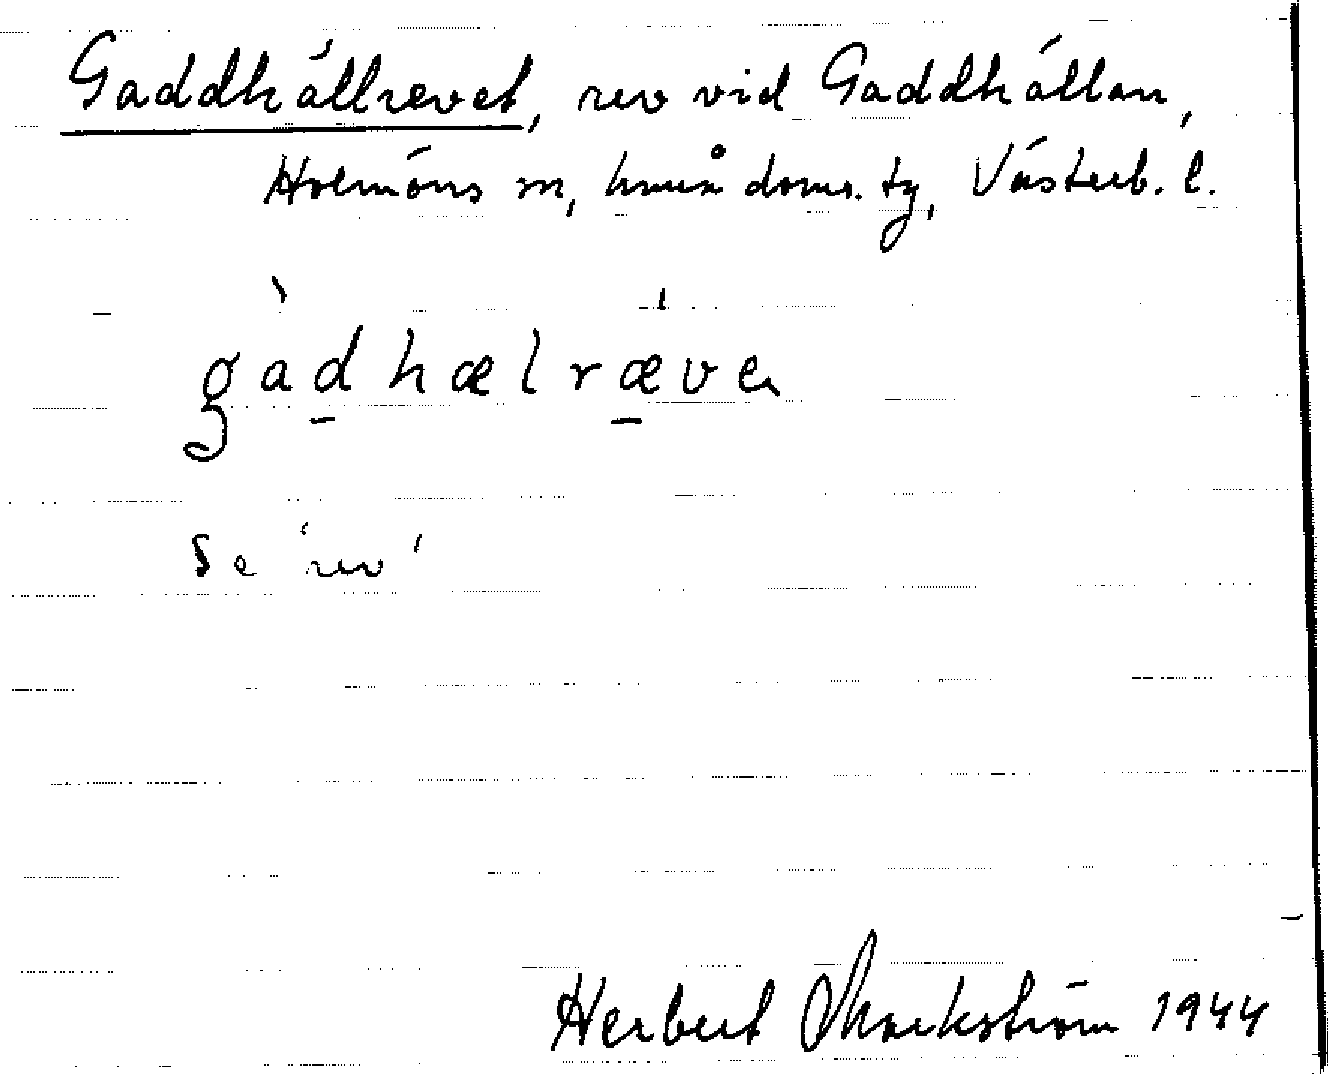 Gaddhällrevet, rev vid Gaddhällan,
Holmöns sn, Umeå doms. tg, Västerb. l.
gàdhælræve
Se 'rev'
Herbert Markström 1944